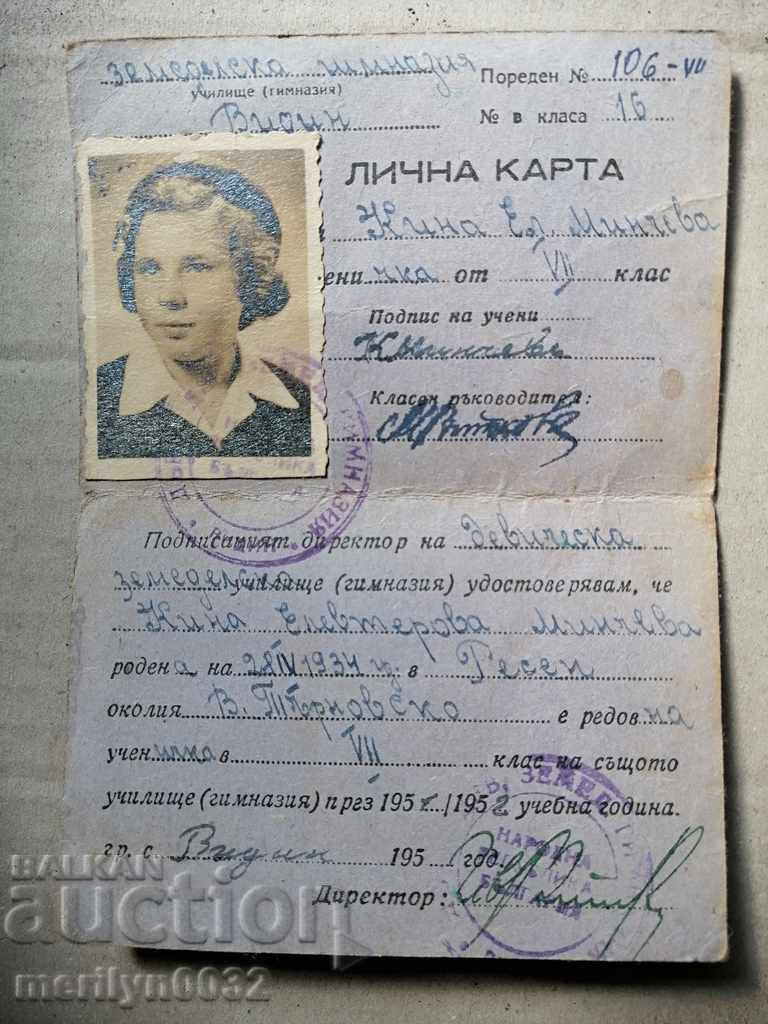 земеделска гимназия Пореден № 106-VII
училище (гимназия)
Видин № в класа 16
ЛИЧНА КАРТА
Кина Ел. Минчева
еничка от VII клас
Подпис на учени
К. Минчева
Класен ръководител:
Подписаният директор на Девическа
земеделска училище (гимназия) удостоверявам, че
Кина Елевтерова Минчева
родена на 28 IV 1934 г. в Ресен
околия В. Търновско е редовна
ученичка в VII клас на същото
училище (гимназия) през 1951/1952 учебна година.
гр. с. Видин 195 год.
Директор:
НАРОДНА
БЪЛГАРИЯ
BALKAN
auction
merilyn0032